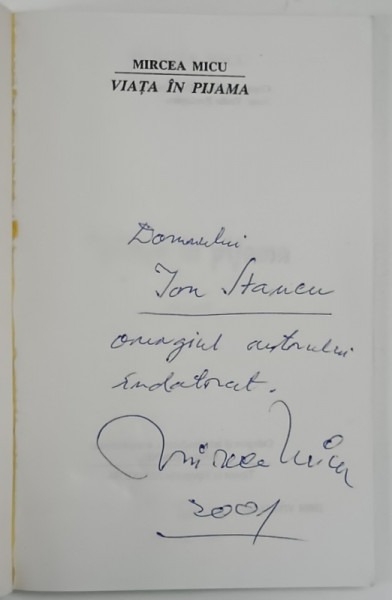 MIRCEA MICU
VIAȚA ÎN PIJAMA
Domnului
Ion Stancu
omagiul autorului
îndatorat.
Mircea Micu
2001